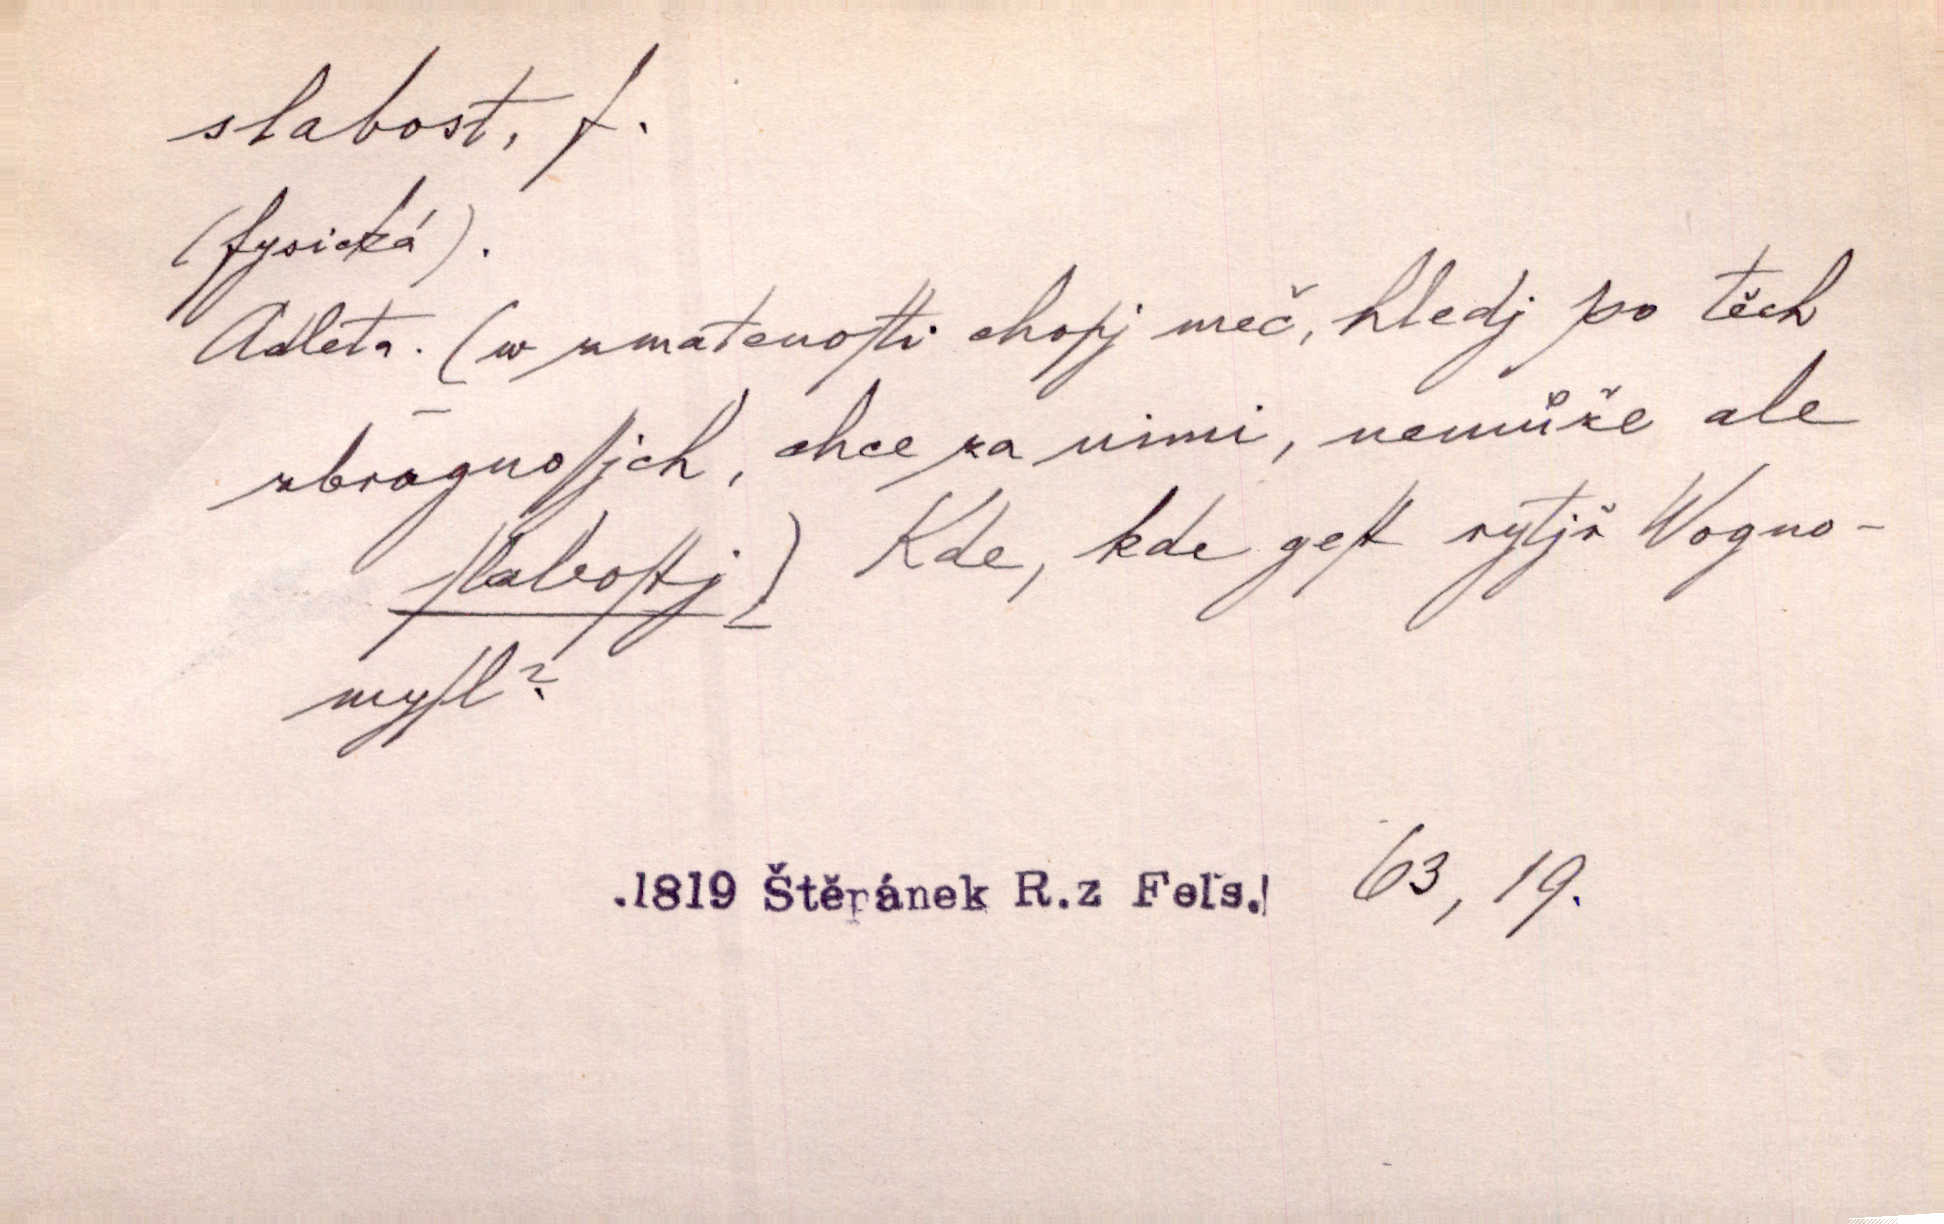 slabost, f.
(fysická).
Adleta. (w zmatenoſti chopj meč, hledj po těch
zbrognoſjch, chce za nimi, nemůže ale
ſlaboſtj) Kde, kde geſt rytjř Wogno-
myſl?
.1819 Štěpánek R.z Fels. 63, 19.